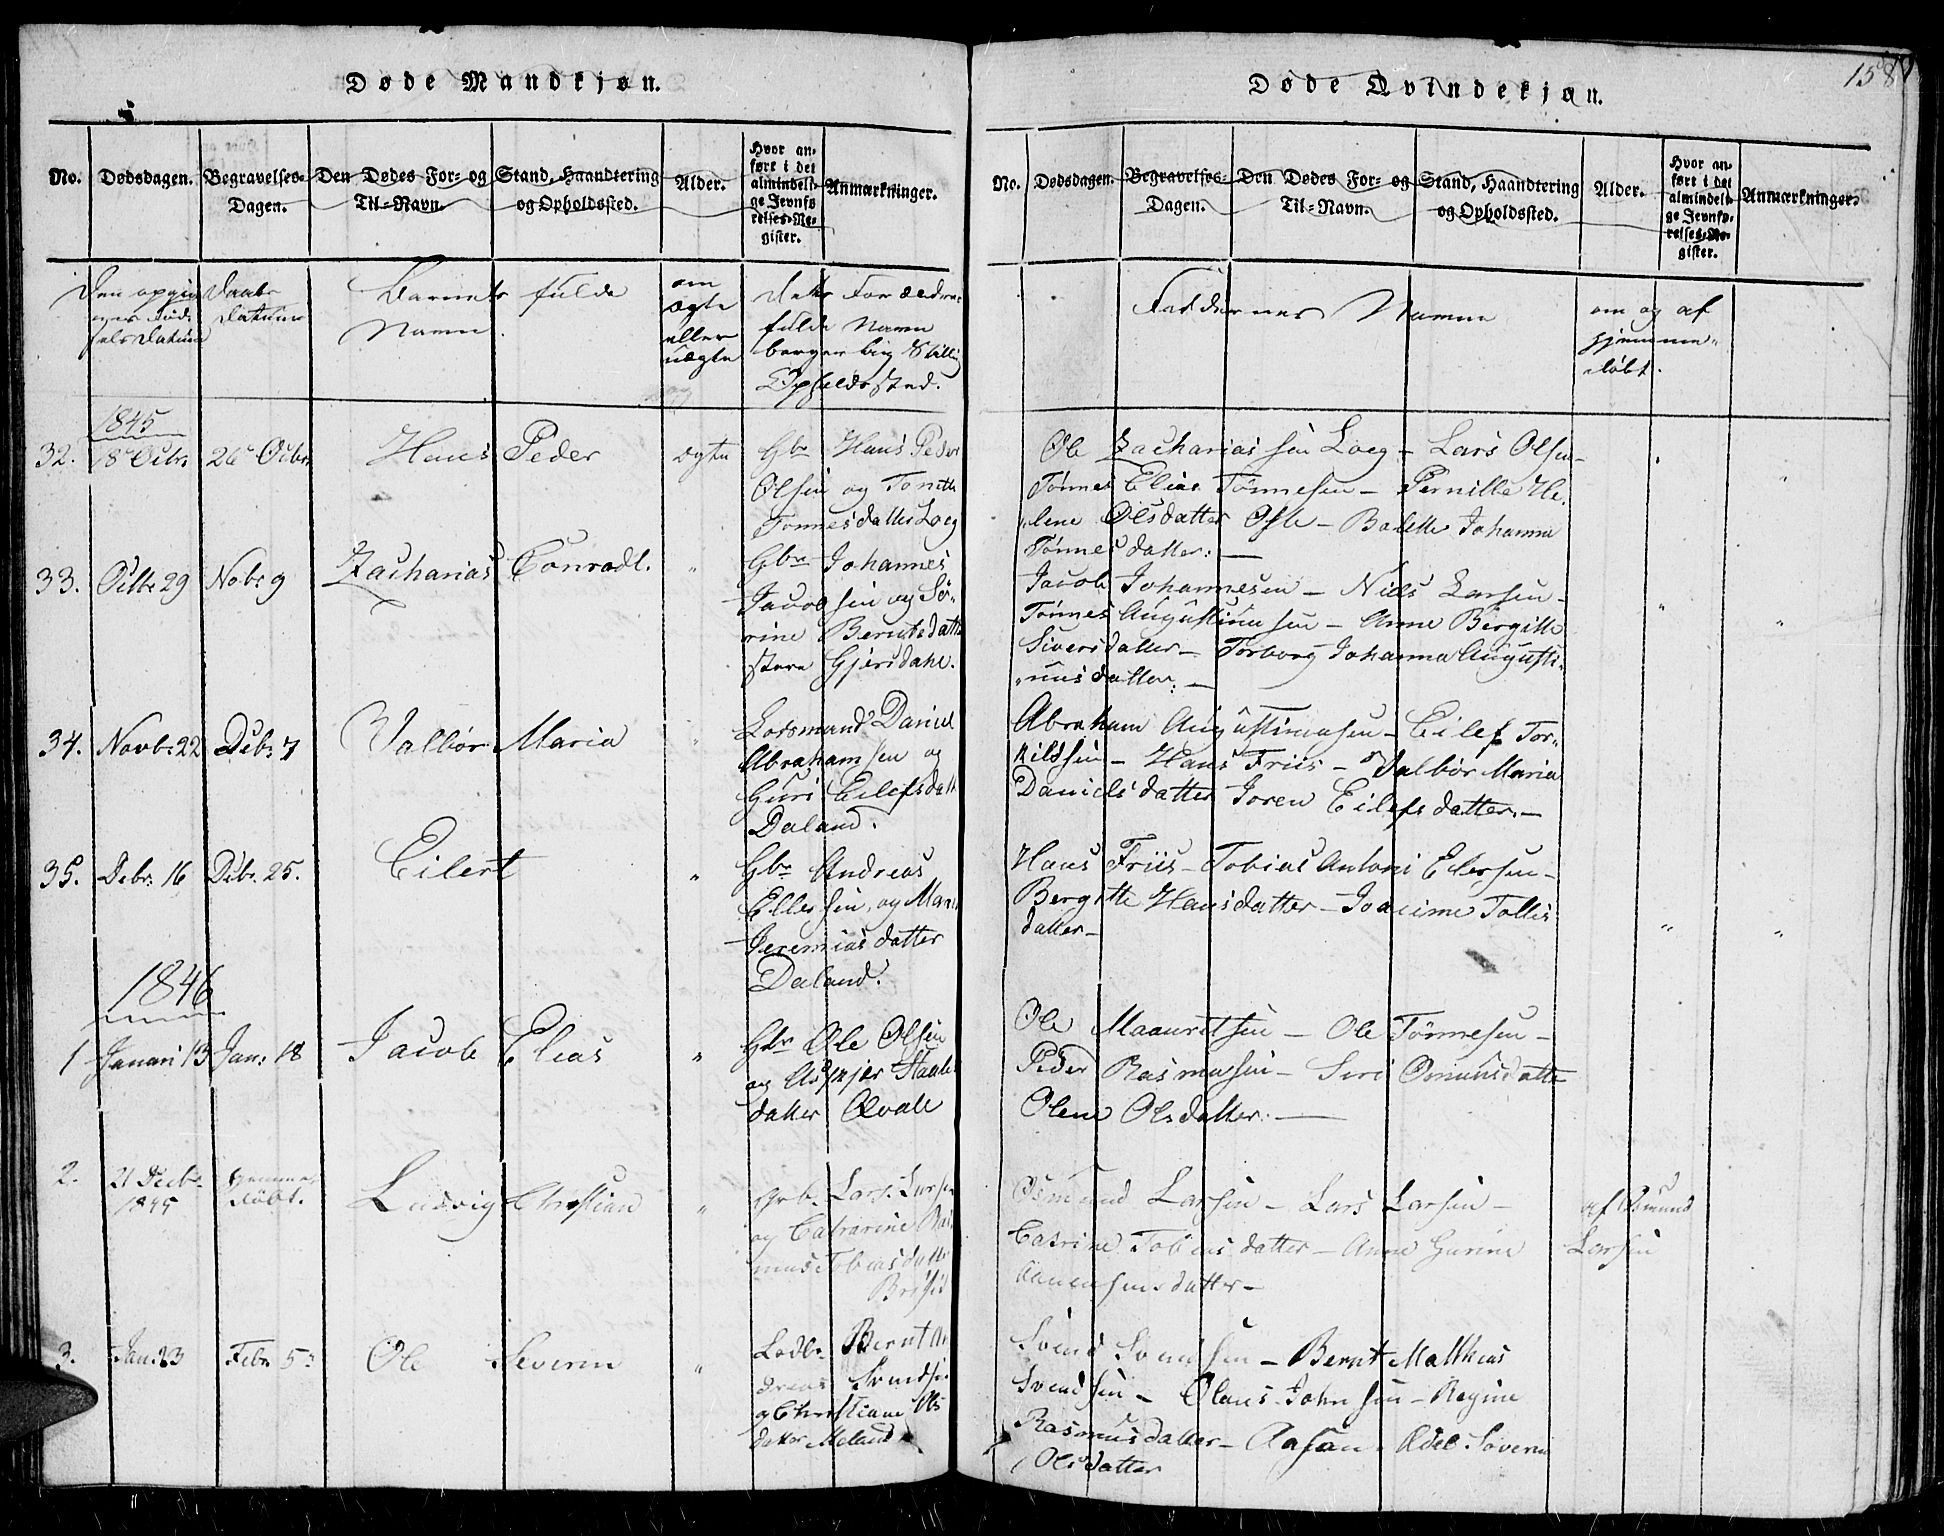 Døde Mandkjøn.
No. Dødsdagen. Begravelses-Dagen. Den Dødes For- og Til-Navn. Stand, Haandtering og Opholdssted. Alder. Hvor anført i det almindelige Jevnførelses-Register. Anmærkninger.
Daabs Datum
Barnets fulde Navn.
om ægte eller uægte
fulde Navn
borgerlig Stilling
Opholdssted.
1845
32. 18 Octbr. 26 Octbr. Hans Peder ægte Gbr Hans Peder
Olsen og Tonette
Tønnesdatter Loeg
33. Octbr 29 Nobr 9 Zacharias Conradt. " Gbr Johannes
Jacobsen og Sø-
rine Berntsdatter
store Gjersdahl.
34. Novbr. 22 Debr. 7 Valbør Maria " Lodsmand Daniel
Abrahamsen og
Guri Eilefsdatt
Daland.
35. Debr. 16 Debr. 25. Eilert " Gbr Andreas
Ellersen, og Mari
Jeremiasdatter
Daland.
1846
1 Januari 13 Jan: 18 Jacob Elias " Gbr Ole Olsen
og
datter
2. 21 Decbr. 1845 hjemmedøbt. Ludvig Christian " Grb. Lars Larsen
og Catrarine
Tobiasdatter
3. Jan. 23 Febr. 5 Ole Severin " Bernt An-
dreas Svendsen
og Christiane Ols
datter Meland
Døde Qvindekjøn.
158
No. Dødsdagen. Begravelses-Dagen. Den Dødes For- og Til-Navn. Stand, Haandtering og Opholdssted. Alder. Hvor anført i det almindelige Jevnførelses-Register. Anmærkninger.
Faddernes Navne
om og af
hjemme-
døbt.
Ole Zachariassen Loeg - Lars Olsen -
Tønnes Elias Tønnesen - Pernille He-
"lene Olsdatter - Johanna
Tønnesdatter: —
Jacob Johannesen - Niels Larsen -
Tønnes Augustinusen - Anne Bergitte
Siversdatter - Torborg Johanna Augusti-
"nusdatter: —
Abraham Augustinusen - Eilef Tor-
kildsen - Hans Friis - Valbør Maria
Danielsdatter Joren Eilefsdatter. —
Hans Friis - Tobias Antoni Eilersen -
Bergitte Hansdatter - Joacime Tollis
datter -
Ole Mauritsen - Ole Tønnesen -
Peder Rasmusen - Siri Omunsdatter
Olene Olsdatter: —
Osmund Larsen - Lars Larsen - af Osmund
Catrine Tobiasdatter - Anne Gurine Larsen
Svend Svendsen - Bernt Matthias
Svendsen - Olaus Johnsen - Regine
Rasmusdatter - Severin
Olsdatter